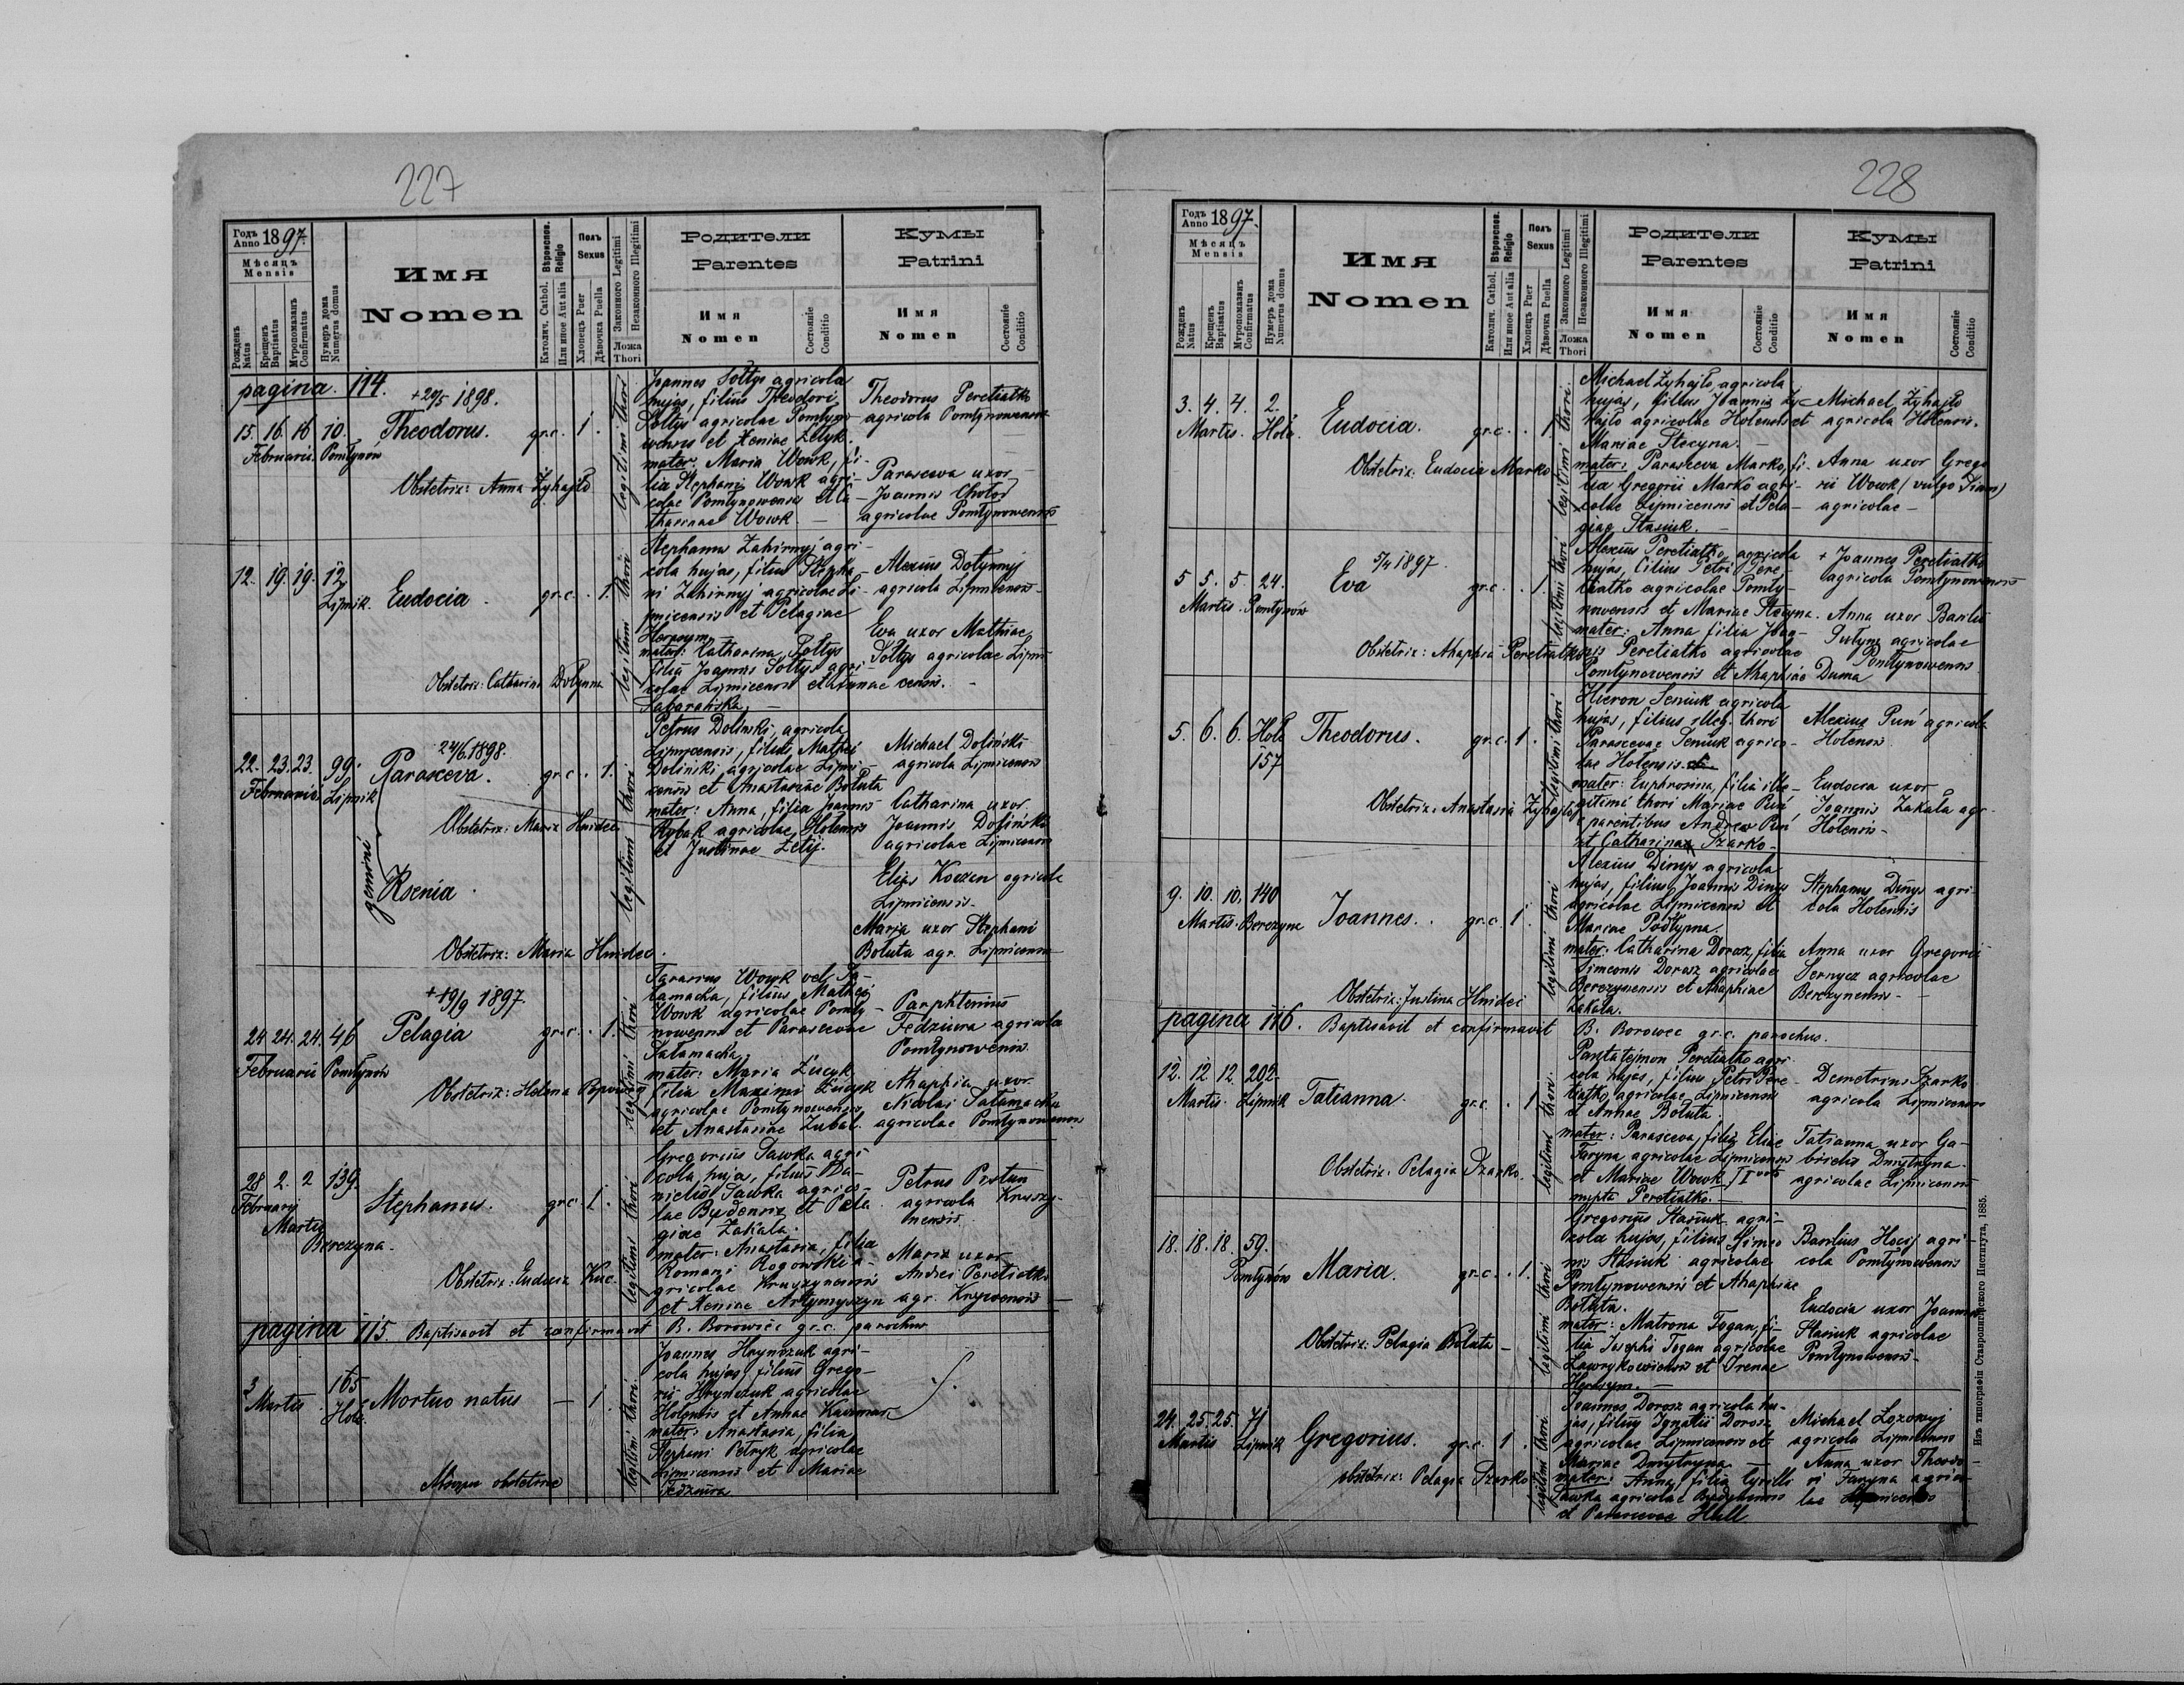 227
Годъ Anno 1897.
Мѣсяцъ
Mensis
Рожденъ Natus
Крещенъ Baptisatus
Муропомазанъ Confirmatus
Нумеръ дома Numerus domus
Имя
Nomen
Католич. Cathol. Вѣроиспов.
Или иное Aut alia Religio
Полъ
Sexus
Хлопецъ Puer
Дѣвочка Puella
Законного Legitimi
Незаконного Illegitimi
Ложа
Thori
Родители
Parentes
Имя
Nomen
Состоянiе
Conditio
Кумы
Patrini
Имя
Nomen
Состоянiе
Conditio
pagina 114.
+ 29/5 1898.
15. 16. 16. 10. Theodorus. gr.c. 1.
Februarii. Pomtynów
Obstetrix: Anna Żyhajło
legitimi thori
Joannes Sołtys agricola
hujas, filius Theodori
Sołtys agricolae Pomtyno-
wensis et Xeniae Zełyk.
mater: Maria Wowk, fi-
lia Stephani Wowk agri-
colae Pomtynowensis et Ca-
tharinae Wowk.
Theodorus Peretiatko
agricola Pomtynowensis
Parasceva uxor
Joannis Chołod
agricolae Pomtynowensis
12. 19. 19. 12. Eudocia. gr.c. . 1.
Lipnik.
Obstetrix: Catharina Dołynna
legitimi thori
Stephanus Zahirnyj agri-
cola hujas, filius Stepha-
ni Zahirnyj agricolae Li-
pnicensis et Pelagiae
Herasym
mater: Catharina Sołtys
filia Joannis Sołtys agri-
colae Lipnicensis et Annae
Sabarańska.
Alexius Dołynnyj
agricola Lipnicensis
Eva uxor Mathiae
Sołtys agricolae Lipni-
censis.
24/6 1898.
22. 23. 23. 99. Parasceva. gr.c. . 1.
Februarii. Lipnik
Obstetrix: Maria Hnidec
gemini
Ksenia.
Obstetrix: Maria Hnidec.
legitimi thori
Petrus Dolinski, agricola
Lipnicensis, filius Mathei
Doliński agricolae Lipni-
censis et Anastasiae Bołuta
mater: Anna, filia Joannis
Rybak agricolae Hotensis
et Justinae Zelij.
Michael Doliński
agricola Lipnicensis
Catharina uxor
Joannis Doliński
agricolae Lipnicensis
Elias Koczan agricola
Lipnicensis.
Maria uxor Stephani
Bołuta agr. Lipnicensis
+ 19/9 1897.
24 24. 24. 46 Pelagia gr.c. . 1.
Februarii Pomtynów
Obstetrix: Helena Popowicz
legitimi thori
Tarasius Wowk vel Sa-
łamacha, filius Mathei
Wowk agricolae Pomty-
nowensis et Parascevae
Sałamacha,
mater: Maria Łucyk
filia Maximi Łucyk
agricolae Pomtynowensis
et Anastasiae Zubal.
Parphtenius
Fedziura agricola
Pomtynowensis.
Ahaphia uxor
Nicolai Sałamacha
agricolae Pomtynowensis
28 2. 2 139. Stephanus. gr.c. 1.
Februarij
Martij
Berezyna.
Obstetrix: Eudocia Kuc.
legitimi thori
Gregorius Sawka agri-
cola hujas, filius Da-
nielis Sawka agrico-
lae Bydensis et Pela-
giae Zakala.
mater: Anastasia, filia
Romani Rogowski a-
gricolae Kruszynensis
et Xeniae Artymyszyn
Petrus Pistun
agricola Kruszy-
nensis
Maria uxor
Andrei Peretiatko
agr. Krywensis
pagina 115. Baptisavit et confirmavit B. Borowiec gr.c. parochus
3 Martii 165 Hołe. Mortuo natus — 1.
Absque obstetrice
legitimi thori
Joannes Hrynczuk agri-
cola hujas, filius Grego-
rii Hrynczuk agricolae
Hotensis et Annae
mater: Anastasia, filia
Stephani Petryk agricolae
Lipnicensis et Mariae
Fedziura
228
Годъ Anno 1897.
Мѣсяцъ
Mensis
Рожденъ Natus
Крещенъ Baptisatus
Муропомазанъ Confirmatus
Нумеръ дома Numerus domus
Имя
Nomen
Католич. Cathol. Вѣроиспов.
Или иное Aut alia Religio
Полъ
Sexus
Хлопецъ Puer
Дѣвочка Puella
Законного Legitimi
Незаконного Illegitimi
Ложа
Thori
Родители
Parentes
Имя
Nomen
Состоянiе
Conditio
Кумы
Patrini
Имя
Nomen
Состоянiе
Conditio
3. 4. 4. 2. Eudocia. gr.c. . 1.
Martii. Hołe.
Obstetrix: Eudocia Marko
legitimi thori
Michael Żyhajło, agricola
hujas, filius Joannis Ży-
hajło agricolae Hotensis et
Mariae Stecyna.
mater: Parasceva Marko, fi-
lia Gregorii Marko agri-
colae Lipnicensis et Pela-
giae Stasiuk.
Michael Żyhajło
agricola Hotensis.
Anna uxor Grego-
rii Wowk (vulgo
agricolae
5/4 1897.
5 5. 5. 24. Eva gr.c. . 1.
Martii. Pomtynów
Obstetrix: Ahaphia Peretiatko
legitimi thori
Alexius Peretiatko agricola
hujas, filius Petri Pere-
tiatko agricolae Pomty-
nowensis et Mariae Stecyna.
mater: Anna filia Joan-
nis Peretiatko agricolae
Pomtynowensis et Ahaphiae Duma
+ Joannes Peretiatko
agricola Pomtynowensis
Anna uxor Basilii
agricolae
Pomtynowensis
5. 6. 6. Hołe 157 Theodorus. gr.c. 1.
Obstetrix: Anastasia Żyhajło
legitimi thori
Hieron Seniuk agricola
hujas, filius illeg. thori
Parascevae Seniuk agrico-
lae Hotensis.
mater: Euphrosina, filia ille-
gitimi thori Mariae Puń
parentibus Andrea Puń
et Catharina Szarko.
Alexius Puń agricola
Hotensis
Eudocia uxor
Joannis Zakała agr.
Hotensis
9. 10. 10. 140 Joannes. gr.c. 1.
Martii. Berezyna
Obstetrix: Justina Hnidec
legitimi thori
Alexius Dinys agricola
hujas, filius Joannis Dinys
agricolae Lipnicensis et
Mariae Podłypna.
mater: Catharina Dorosz, filia
Simeonis Dorosz agricolae
Berezynensis et Ahaphiae
Zakala.
Stephanus Dinys agri-
cola Hotensis
Anna uxor Gregorii
Sernycz agricolae
Berezynensis
pagina 116. Baptisavit et confirmavit B. Borowec gr.c. parochus.
12. 12. 12. 202. Tatianna. gr.c. . 1
Martii. Lipnik
Obstetrix: Pelagia Szarko.
legitimi thori
Pantalejmon Peretiatko agri-
cola hujas, filius Petri Pere-
tiatko agricolae Lipnicensis
et Annae Bołuta.
mater: Parasceva, filia Eliae
Faryna agricolae Lipnicensis
et Mariae Wowk, I voto
nupta Peretiatko.
Demetrius Szarko
agricola Lipnicensis
Tatianna uxor Ga-
brielis Dmytryna
agricolae Lipnicensis
18. 18. 18. 59. Maria. gr.c. . 1.
Pomtynów
Obstetrix: Pelagia Bołuta
legitimi thori
Gregorius Stasiuk agri-
cola hujas, filius Simeo-
nis Stasiuk agricolae
Pomtynowensis et Ahaphiae
Bołuta.
mater: Matrona Togan, fi-
lia Josephi Togan agricolae
Ławrykowiensis et Irenae
Herasym.
Basilius Hocij agri-
cola Pomtynowensis
Eudocia uxor Joannis
Stasiuk agricolae
Pomtynowensis
24. 25. 25. 71 Gregorius. gr.c. 1.
Martii Lipnik
obstetrix: Pelagia Szarko
legitimi thori
Joannes Dorosz agricola hu-
jas, filius Ignatii Dorosz
agricolae Lipnicensis et
Mariae Dmytryna.
mater: Anna, filia Cyrilli
Sawka agricolae
et Parascevae Hull
Michael Łozowyj
agricola Lipnicensis
Anna uxor Theodo-
ri Faryna agrico-
lae Lipnicensis
Изъ типографiи Ставропигiйского Института, 1885.